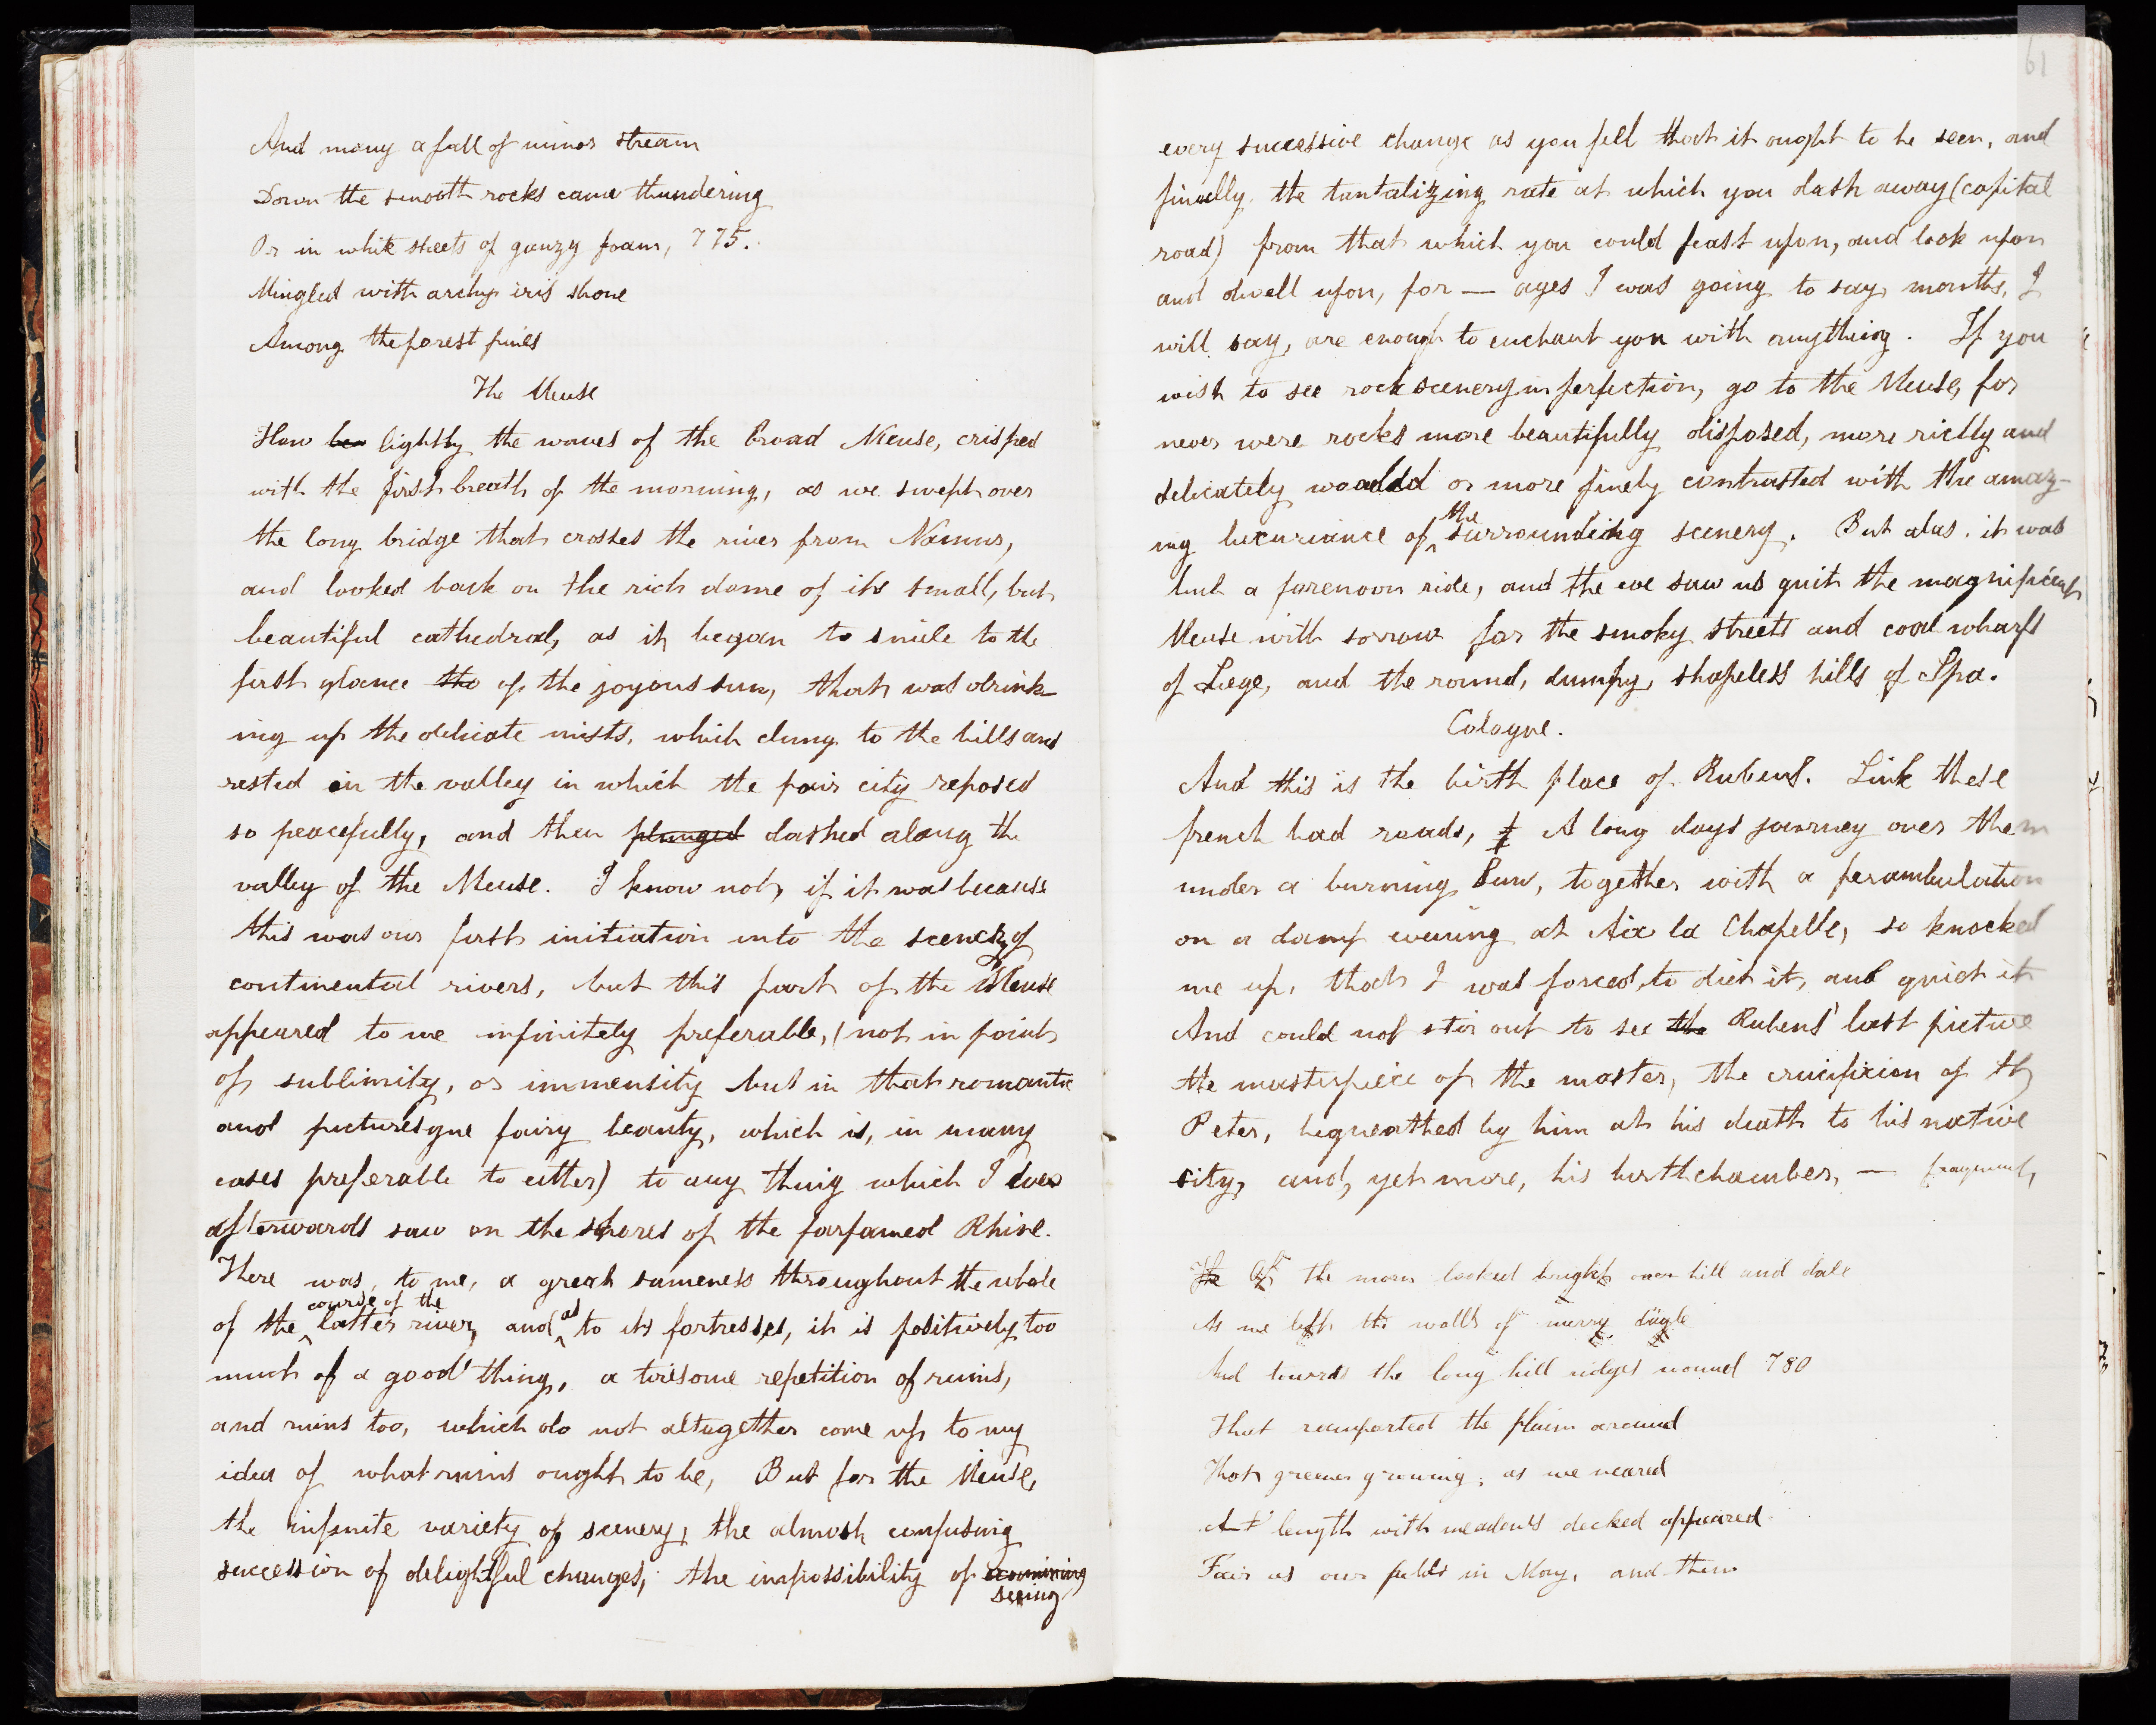 And many a fall of minor stream
Down the smooth rocks came thundering
Or in white sheets of gauzy foam, 775.
Mingled with archy iris shone
Among the forest pines
The Meuse
How lightly the waves of the broad Meuse, crisped
with the first breath of the morning, as we swept over
the long bridge that crosses the river from Namur,
and looked back on the rich dome of its small, but
beautiful cathedral, as it began to smile to the
first glance the of the joyous sun, that was drink-
ing up the delicate mists, which clung to the hills and
rested in the valley in which the fair city reposed
so peacefully, and then plunged dashed along the
valley of the Meuse. I know not, if it was because
this was our first initiation into the scenery of
continental rivers, but this part of the Meuse
appeared to me infinitely preferable, (not in point
of sublimity, or immensity but in that romantic
and picturesque fairy beauty, which is, in many
cases preferable to either) to any thing which I ever
afterwards saw on the shores of the farfamed Rhine.
There was, to me, a great sameness throughout the whole
of the course of the latter river, and as to its fortresses, it is positively too
much of a good thing, a tiresome repetition of ruins,
and ruins too, which do not altogether come up to my
idea of what ruins ought to be, But for the Meuse,
the infinite variety of scenery, the almost confusing
succession of delightful changes, the impossibility of
seeing
61
every successive change as you fell that it ought to be seen, and
finally, the tantalizing rate at which you dash away (capital
road) from that which you could feast upon, and look upon
and dwell upon, for — ages I was going to say, months, I
will say, are enough to enchant you with anything. If you
wish to see rock scenery in perfection, go to the Meuse, for
never were rocks more beautifully disposed, more richly and
delicately wooded or more finely contrasted with the amaz-
ing luxuriance of the surrounding scenery. But alas. it was
but a forenoon ride, and the eve saw us quit the magnificent
Meuse with sorrow for the smoky streets and coal wharfs
of Liege, and the round, dumpy, shapeless hills of Spa.
Cologne.
And this is the birth place of Rubens. Link these
french bad roads, A long days journey over them
under a burning Sun, together with a perambulation
on a damp evening at Aix la Chapelle, so knocked
me up, that I was forced, to diet it, and quiet it
And could not stir out to see the Rubens' last picture
the masterpiece of the master, the crucifixion of St
Peter, bequeathed by him at his death to his native
city, and, yet more, his birthchamber, — fragment,
The Oh the morn looked bright on hill and dale
As we left the walls of merry
And towards the long hill ridges wound 780
That ramparted the plain around
That greener growing, as we neared
At length with meadows decked appeared
Fair as our fields in May, and then